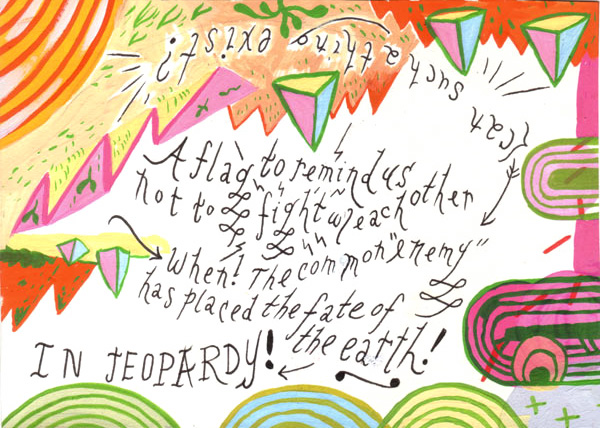 (Can such a thing exist?)
A flag to remind us
not to fight w/ each other
When! The common "enemy"
has placed the fate of
the earth!
IN JEOPARDY!